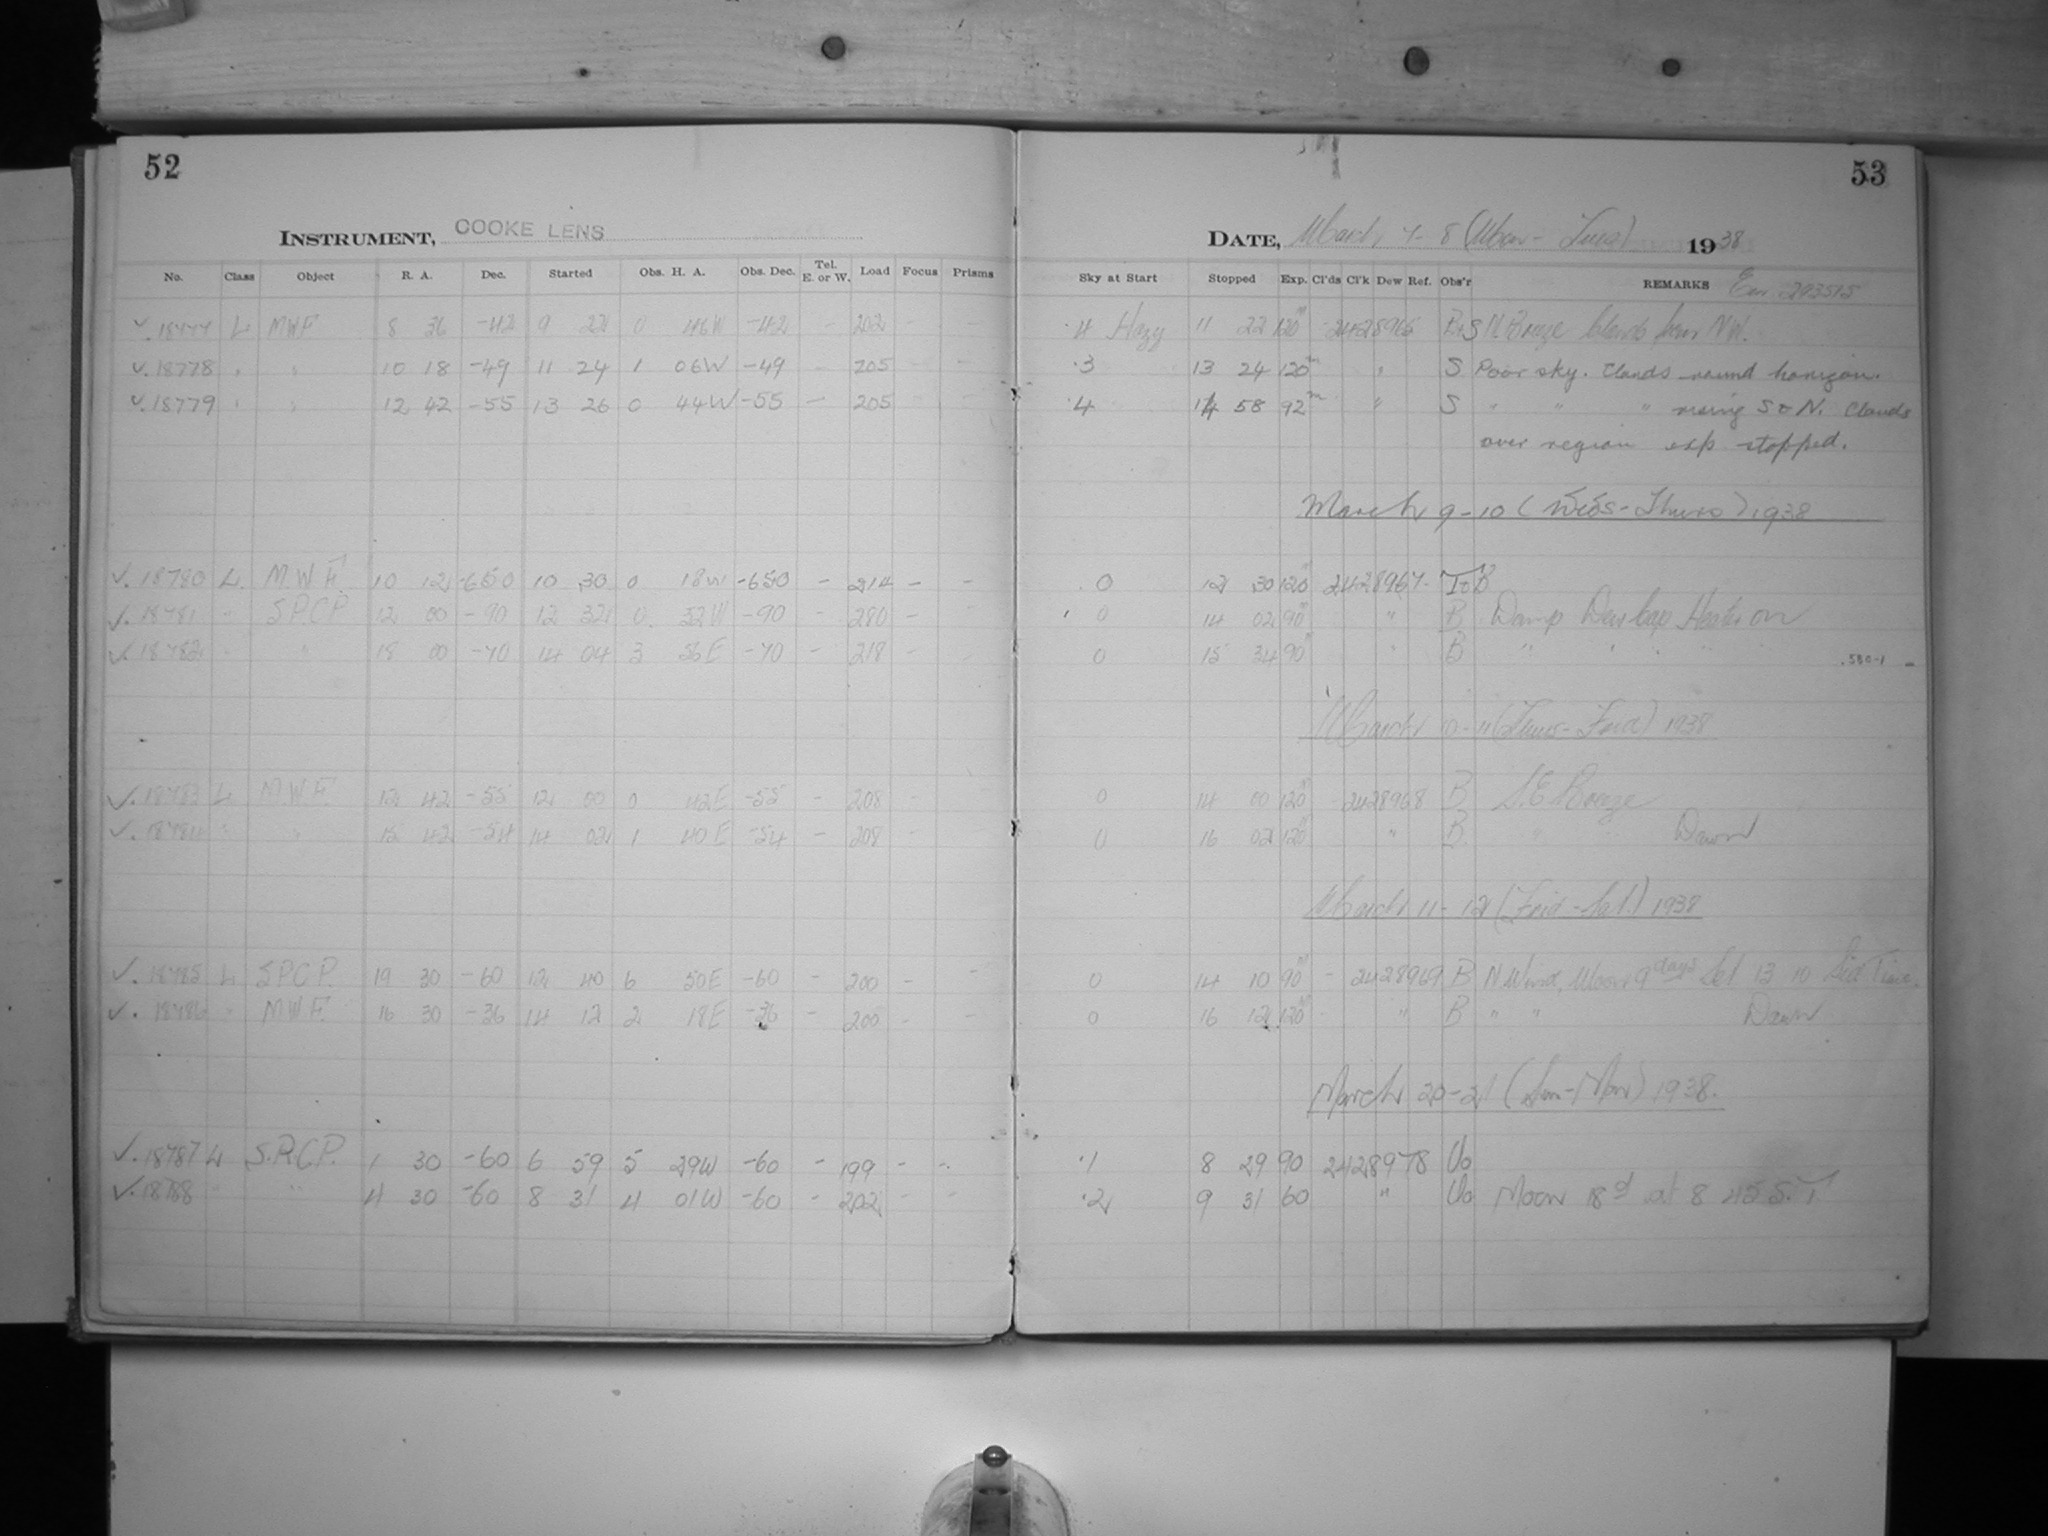 52
53
INSTRUMENT, COOKE LENS
DATE, March 7-8 (Mon - Tues) 1938
No. Class Object R. A. Dec. Started Obs. H. A. Obs. Dec. Tel. E. or W. Load Focus Prisms Sky at Start Stopped Exp. Cl'ds Cl'k Dew Ref. Obs'r REMARKS
✓. 18777 L MWF 8 36 -42 9 22 0 46W -42 - 202 - - .4 Hazy 11 22 120m 2428966 B+S N. Breeze Clouds near NW.
✓. 18778 " " 10 18 -49 11 24 1 06W -49 - 205 - .3 13 24 120m " S Poor sky. Clouds round horizon.
✓. 18779 " " 12 42 -55 13 26 0 44W -55 - 205 .4 14 58 92m " S " " " rising S & N. Clouds
over region exp stopped.
March 9-10 (Weds-Thurs) 1938
✓. 18780 L. M.W.F. 10 12 -650 10 30 0 18W -650 - 214 - - .0 12 30 120m 2428967
✓. 18781 " S.P.C.P. 12 00 -90 12 32 0. 32W -90 - 280 - 0 14 02 90m " B Damp Dew Cap Heater on
✓. 18782 " " 18 00 -70 14 04 3 56E -70 - 218 - 0 15 34 90m " B " " " "
.580-1 -
March 10-11 (Thurs-Frid) 1938
✓. 18783 L M.W.F. 12 42 -55 12 00 0 42E -55 - 208 - 0 14 00 120m - 2428968 B S.E. Breeze
✓. 18784 " " 15 42 -54 14 02 1 40E -54 - 208 - 0 16 02 120m " B. " Dawn
March 11-12 (Frid-Sat.) 1938
✓. 18785 L S.P.C.P. 19 30 -60 12 40 6 50E -60 - 200 - - 0 14 10 90m - 2428969 B N Wind, Moon 9 days Set 13 10 Sid Time.
✓. 18786 " M.W.F. 16 30 -36 14 12 2 18E -36 - 200 - - 0 16 12 120m " B " " Dawn
March 20-21 (Sun-Mon) 1938.
✓. 18787 L S.P.C.P. 1 30 -60 6 59 5 29W -60 - 199 - - .1 8 29 90 2428978 Uo
✓. 18788 " " 4 30 -60 8 31 4 01W -60 - 202 - - .2 9 31 60 " Uo Moon 18d at 8 45 S.T